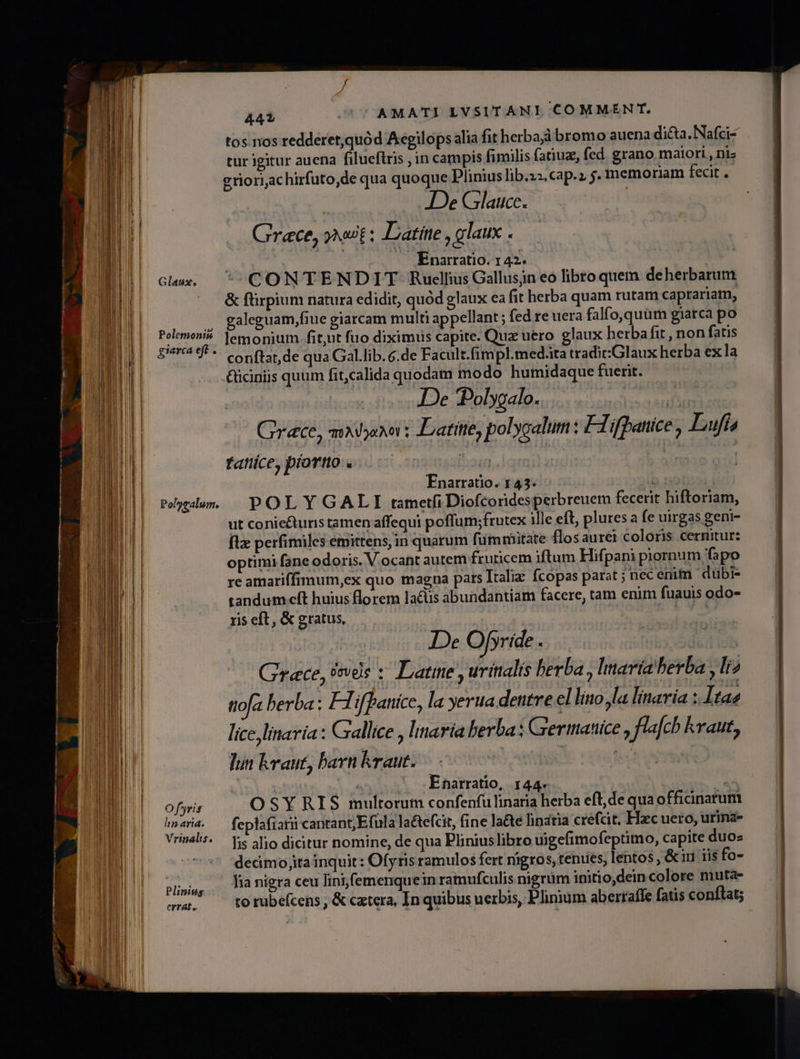 442 AMATI LVSITANI COMMENT.
tos nos redderet,quòd Aegilops alia fit herba,à bromo auena dicta. Nasci-
tur igitur auena siluestris, in campis similis satiuæ, sed grano maiori, ni-
griori,ac hirsuto,de qua quoque Plinius lib.22,cap.25. memoriam fecit.
De Glauce.
Græce, γλαυξ: Latine, glaux.
Enarratio. 142.
Glaux. CONTENDIT Ruellius Gallus,in eo libro quem de herbarum
& stirpium natura edidit, quòd glaux ea sit herba quam rutam caprariam,
galeguam,siue giarcam multi appellant; sed re uera falso,quùm giarca po
Polemoniũ lemonium sit,ut suo diximus capite. Quæ uero glaux herba sit, non satis
giarca est. constat,de qua Gal.lib.6.de Facult.simpl.med.ita tradit:Glaux herba ex la
cticiniis quum sit,calida quodam modo humidaque fuerit.
De Polygalo.
Græce, πολύγαλον: Latine, polygalum: Hispanice, Lusi-
tanice, piorno.
Enarratio. 143.
Polygalum. POLYGALI tametsi Dioscorides perbreuem fecerit historiam,
ut coniecturis tamen assequi possum;frutex ille est, plures a se uirgas geni-
stæ persimiles emittens,in quarum summitate flos aurei coloris cernitur:
optimi sane odoris. Vocant autem fruticem istum Hispani piornum sapo
re amarissimum,ex quo magna pars Italiæ scopas parat; nec enim dubi-
tandum est huius florem lactis abundantiam facere, tam enim suauis odo-
ris est, & gratus.
De Osyride.
Græce, ὄσυρις: Latine, urinalis herba, linaria herba, li-
nosa herba: Hispanice, la yerua dentre el lino,la linaria: Ita-
lice,linaria: Gallice, linaria herba: Germanice, flasch kraut,
lun kraut, harn kraut.
Enarratio, 144.
Osyris OSYRIS multorum consensu linaria herba est,de qua officinarum
linaria. seplasiarii cantant,Esula lactescit, sine lacte linaria crescit. Hæc uero, urina-
Vrinalis. lis alio dicitur nomine, de qua Plinius libro uigesimoseptimo, capite duo-
decimo,ita inquit: Osyris ramulos fert nigros, tenues, lentos, & in iis fo-
Plinius lia nigra ceu lini,semenque in ramusculis nigrum initio,dein colore muta-
errat. to rubescens, & cætera, In quibus uerbis, Plinium aberrasse satis constat;